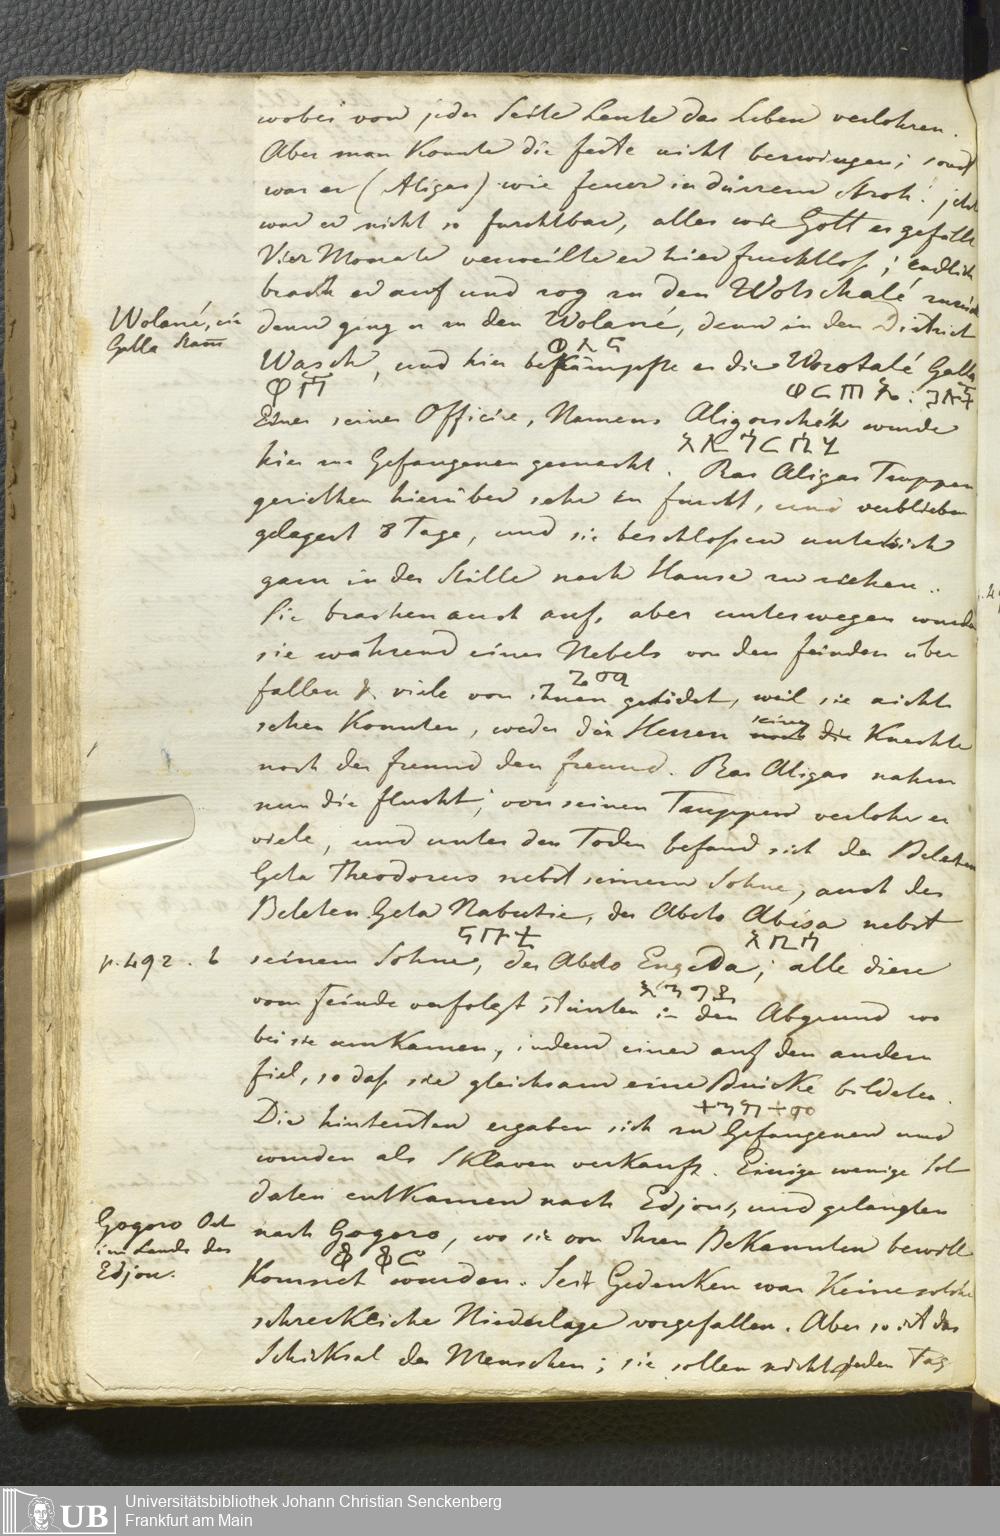 wobei von jeder Seite Leute das Leben verlohren.
Aber man konnte die feste nicht bezwingen; sonst
war er (Aligas) wie feuer in dürrem Stroh! jetzt
war er nicht so furchtbar, alles wie Gott es gefällt
Vier Monate verweilte er hier fruchtlos; endlich
brach er auf und zog zu den Wolschalé zurück
Wolané, ein
Galla Stam̅
dann ging er zu den Wolané, dann in den District
Wasch, und hier bekämpfte er die Worotalé Galla
Einer seiner Officire, Namens Aligorschéh wurde
hier zu Gefangenen gemacht. Ras Aligas Truppen
geriethen hierüber sehr in furcht, und verblieben
gelagert 8 Tage, und sie beschlossen unter sich
ganz in der Stille nach Hause zu ziehen.
Sie brachen auch auf, aber unterwegen wurden
sie während eines Nebels von den feinden über
fallen & viele von ihnen getödet, weil sie nicht
sehen konnten, weder die Herren seine Knechte
noch der freund den freund. Ras Aligas nahm
nun die flucht; von seinen Truppen verlohr er
viele, und unter den Toden befand sich der Belaten
Geta Theodorus nebst seinem Sohne, auch der
Belaten Geta Nabutie, der Abeto Abisa nebst
p. 492. b
seinem Sohne, der Abeto Engeda; alle diese
vom feinde verfolgt stürzten in den Abgrund wo
bei sie umkamen, indem einer auf den andern
fiel, so daß sie gleichsam eine Brücke bildeten.
Die hintersten ergaben sich zu Gefangenen und
wurden als Sklaven verkauft. Einige wenige Sol
daten entkamen nach Edjou, und gelangten
Gogoro Ort
im Lande der
Edjou.
nach Gogoro, wo sie von ihren Bekannten bewill
komnet wurden. Seit Gedenken war keine solche
schreckliche Niederlage vorgefallen. Aber so ist das
Schicksal der Menschen; sie sollen nicht jeden Tag
Universitätsbibliothek Johann Christian Senckenberg
Frankfurt am Main
UB